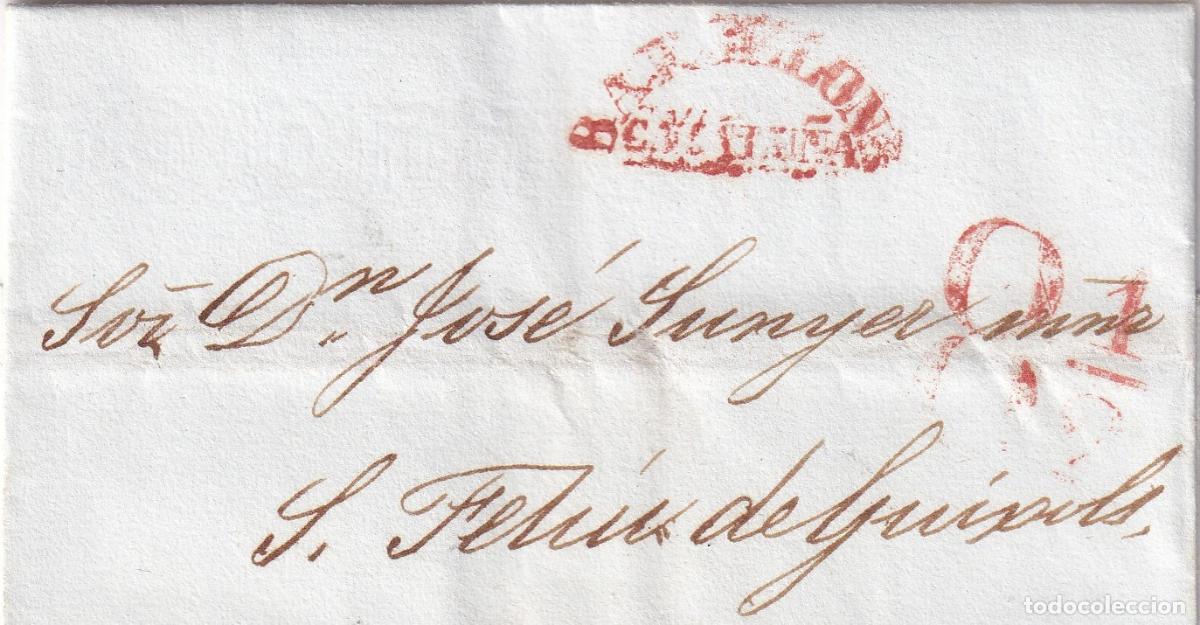 BARCELONA
CATALUÑA
Sor. Dn. José Sunyer
S. Feliu de Guixols.
todocoleccion